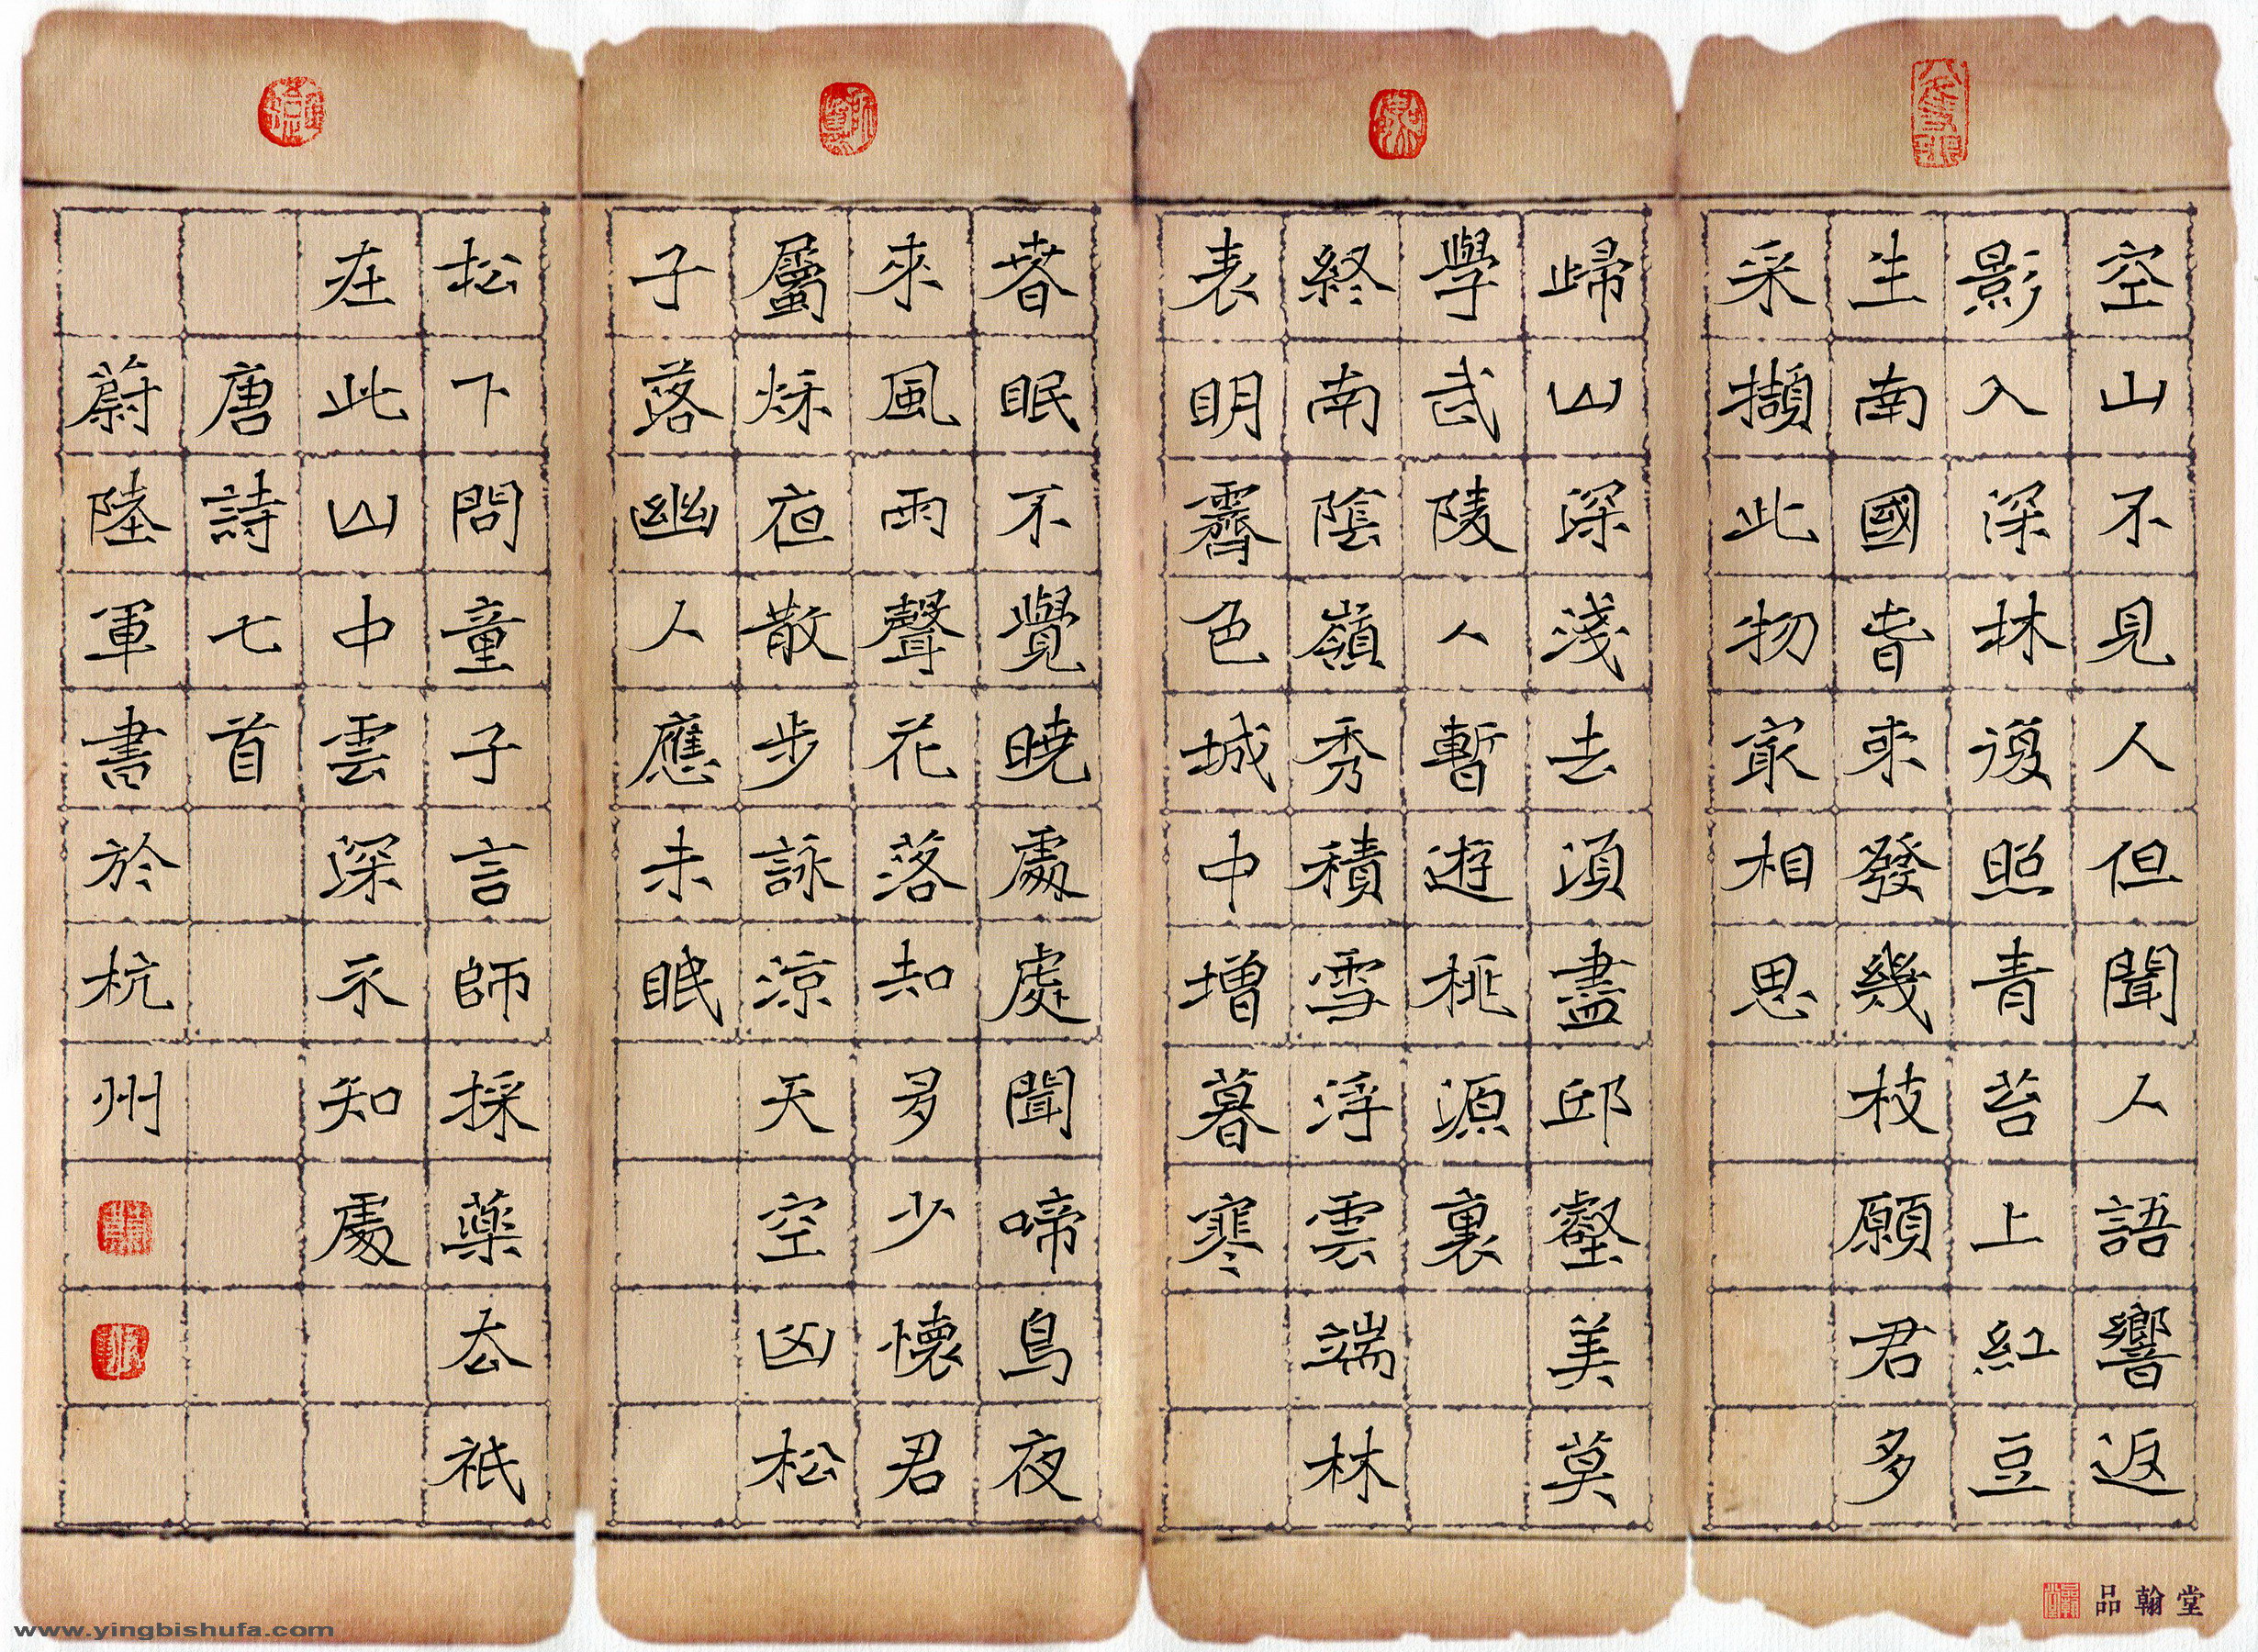 空山不見人但聞人語響返
影入深林復照青苔上紅豆
生南國旾來發幾枝願君多
采擷此物冣相思
歸山深淺去須盡邱壑美莫
學武陵人暫遊桃源裏
終南陰嶺秀積雪浮雲端林
表明霽色城中增暮寒
春眠不覺曉處處聞啼鳥夜
來風雨聲花落知多少懷君
屬秌夜散步詠涼天空山松
子落幽人應未眠
松下問童子言師採藥去祇
在此山中雲深不知處
唐詩七首
蔚陸軍書於杭州
品翰堂
www.yingbishufa.com